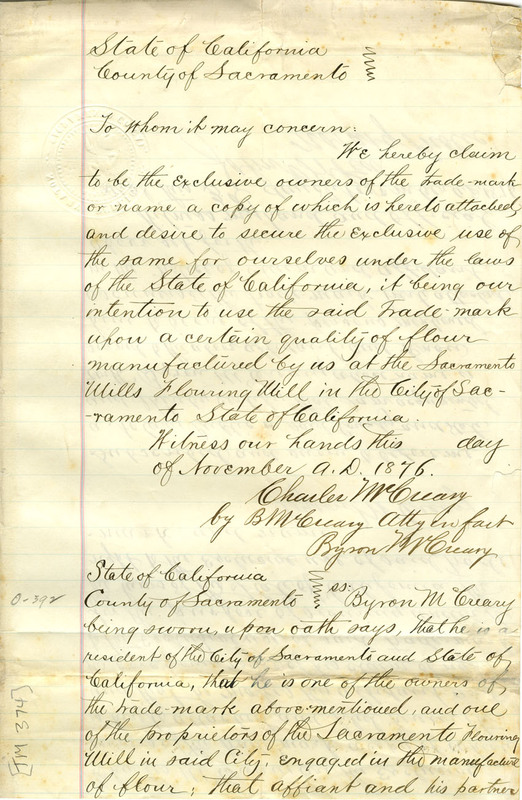 State of California
County of Sacramento
To whom it may concern:
We hereby claim
to be the exclusive owners of the trade-mark
or name a copy of which is hereto attached,
and desire to secure the exclusive use of
the same for ourselves under the laws
of the State of California, it being our
intention to use the said trade-mark
upon a certain quality of flour
manufactured by us at the Sacramento
Mills Flouring Mill in the City of Sac-
-ramento State of California.
Witness our hands this day
of November A.D. 1876.
Charles McCreary
by B McCreary Atty in fact
Byron McCreary
State of California
County of Sacramento ss: Byron McCreary
being sworn, upon oath says, that he is a
resident of the City of Sacramento and State of
California, that he is one of the owners of
the trade-mark above mentioned, and one
of the proprietors of the Sacramento Flouring
Mill in said City, engaged in the manufacture
of flour; that affiant and his partner
0-392